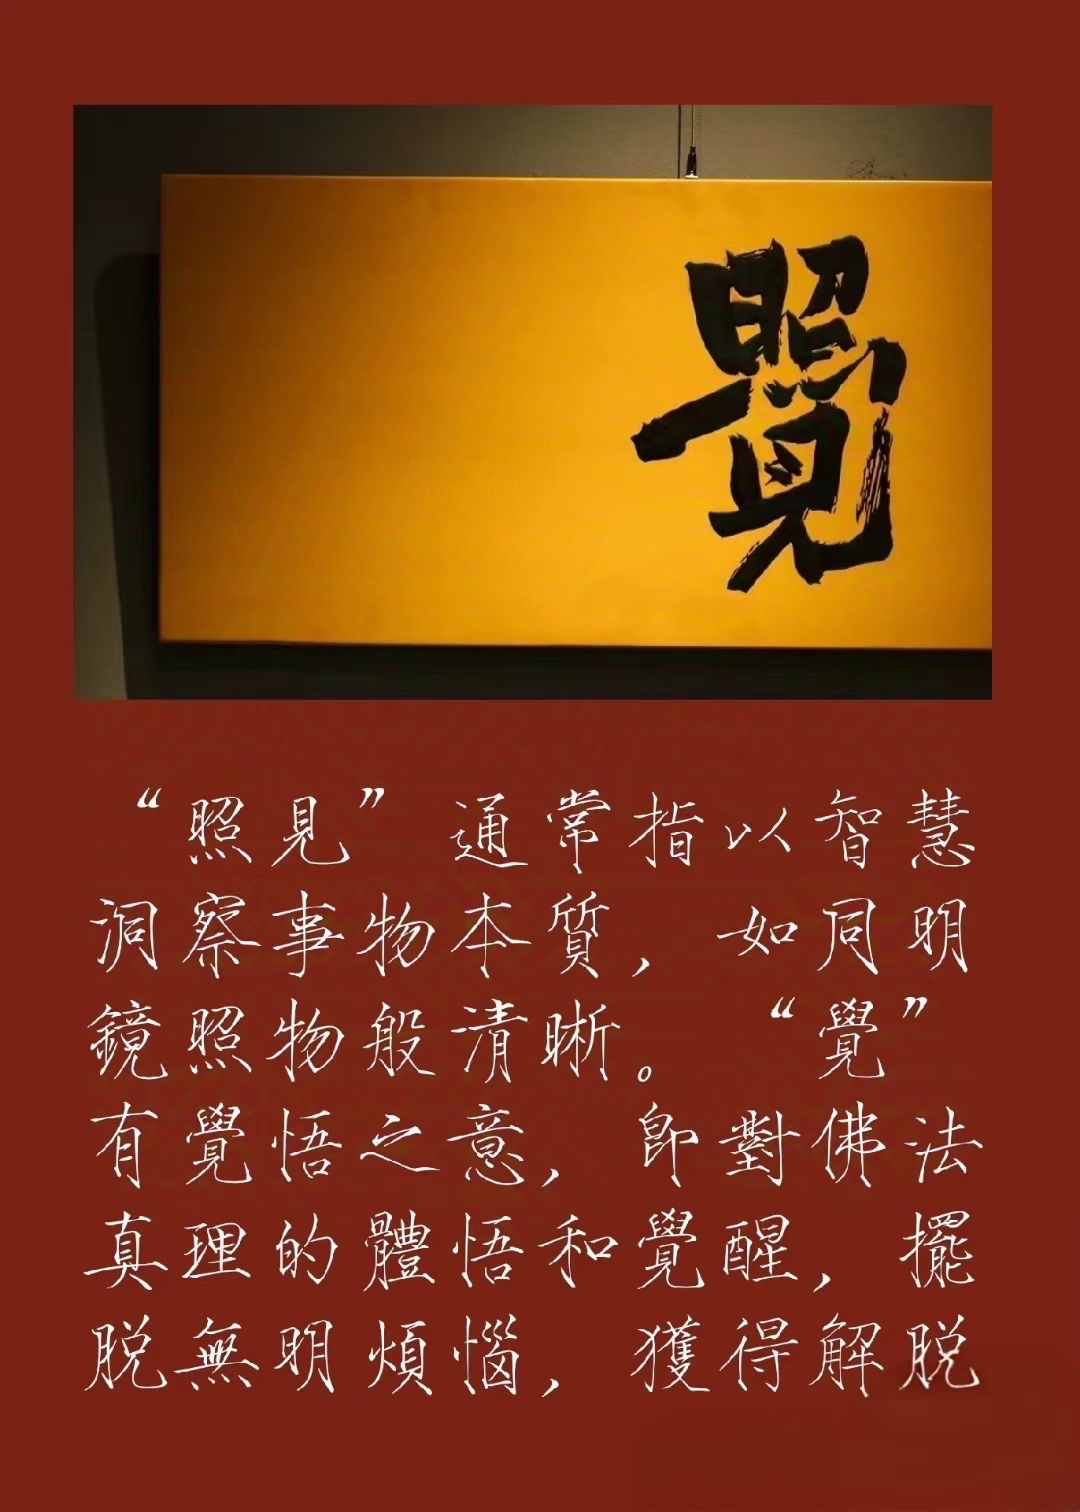 “照見”通常指以智慧
洞察事物本質，如同明
鏡照物般清晰。“覺”
有覺悟之意，即對佛法
真理的體悟和覺醒，擺
脫無明煩惱，獲得解脫